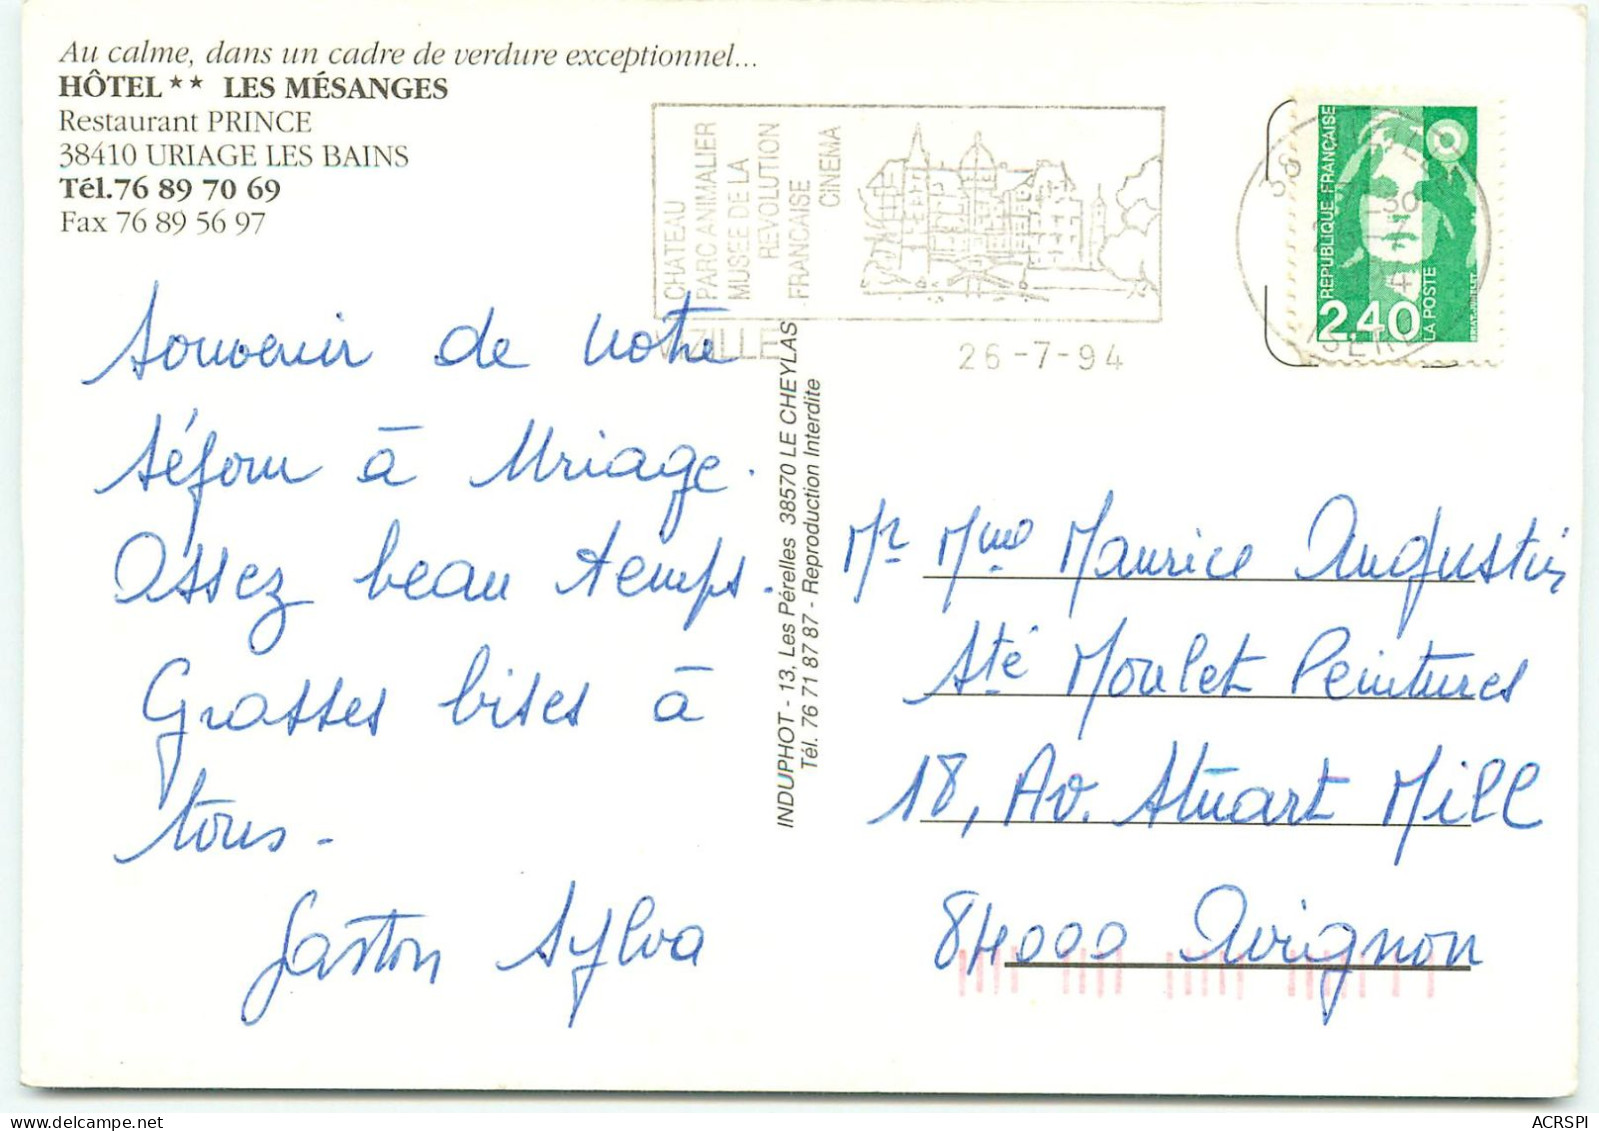 Au calme, dans un cadre de verdure exceptionnel...
HÔTEL★★ LES MÉSANGES
Restaurant PRINCE
38410 URIAGE LES BAINS
Tél.76 89 70 69
Fax 76 89 56 97
CHATEAU
PARC ANIMALIER
MUSEE DE LA
REVOLUTION
FRANCAISE
CINEMA
VIZILLE
26-7-94
38 VIZILLE
ISERE
REPUBLIQUE FRANÇAISE
2,40
LA POSTE
Souvenir de notre
séjour à Uriage.
Assez beau temps.
Grosses bises à
tous.
Gaston Sylva
INDUPHOT - 13, Les Pérelles 38570 LE CHEYLAS
Tél. 76 71 87 87 - Reproduction Interdite
Mr Mme Maurice Augustin
Sté Moulet Peintures
18, Av. Stuart Mill
84000 Avignon
ACRSPI